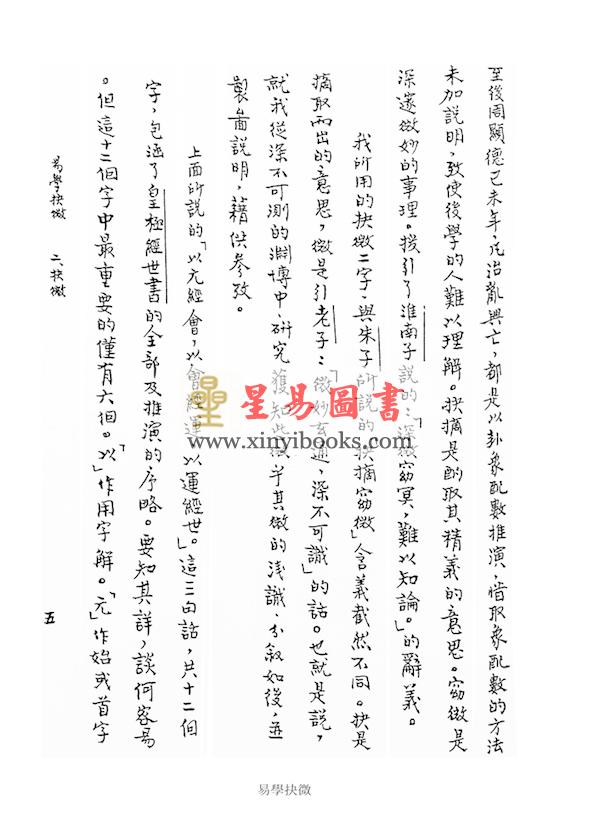 至後周顯德己未年，凡治亂興亡，都是以卦象配數推演，惜取象配數的方法
未加説明，致使後學的人難以理解。抉摘是酌取其精義的意思。窈微是
深邃微妙的事理。援引了淮南子説的：「深微窈冥，難以知論。」的辭義。
我所用的抉微二字，與朱子所説的「抉摘窈微」含義截然不同。抉是
摘取而出的意思，微是引老子：「微妙玄通，深不可識」的話。也就是説，
就我從深不可測的淵博中，研究獲知些微乎其微的淺識，分叙如後，並
製啚説明，藉供參攷。
上面所説的「以元經會，以會經運，以運經世。」這三句話，共十二個
字，包涵了皇極經世書的全部及推演的序略。要知其詳，談何容易
。但這十二個字中最重要的僅有六個。「以」作用字解。「元」作始或首字
易學抉微 二、抉微
五
星易圖書
www.xinyibooks.com
易學抉微